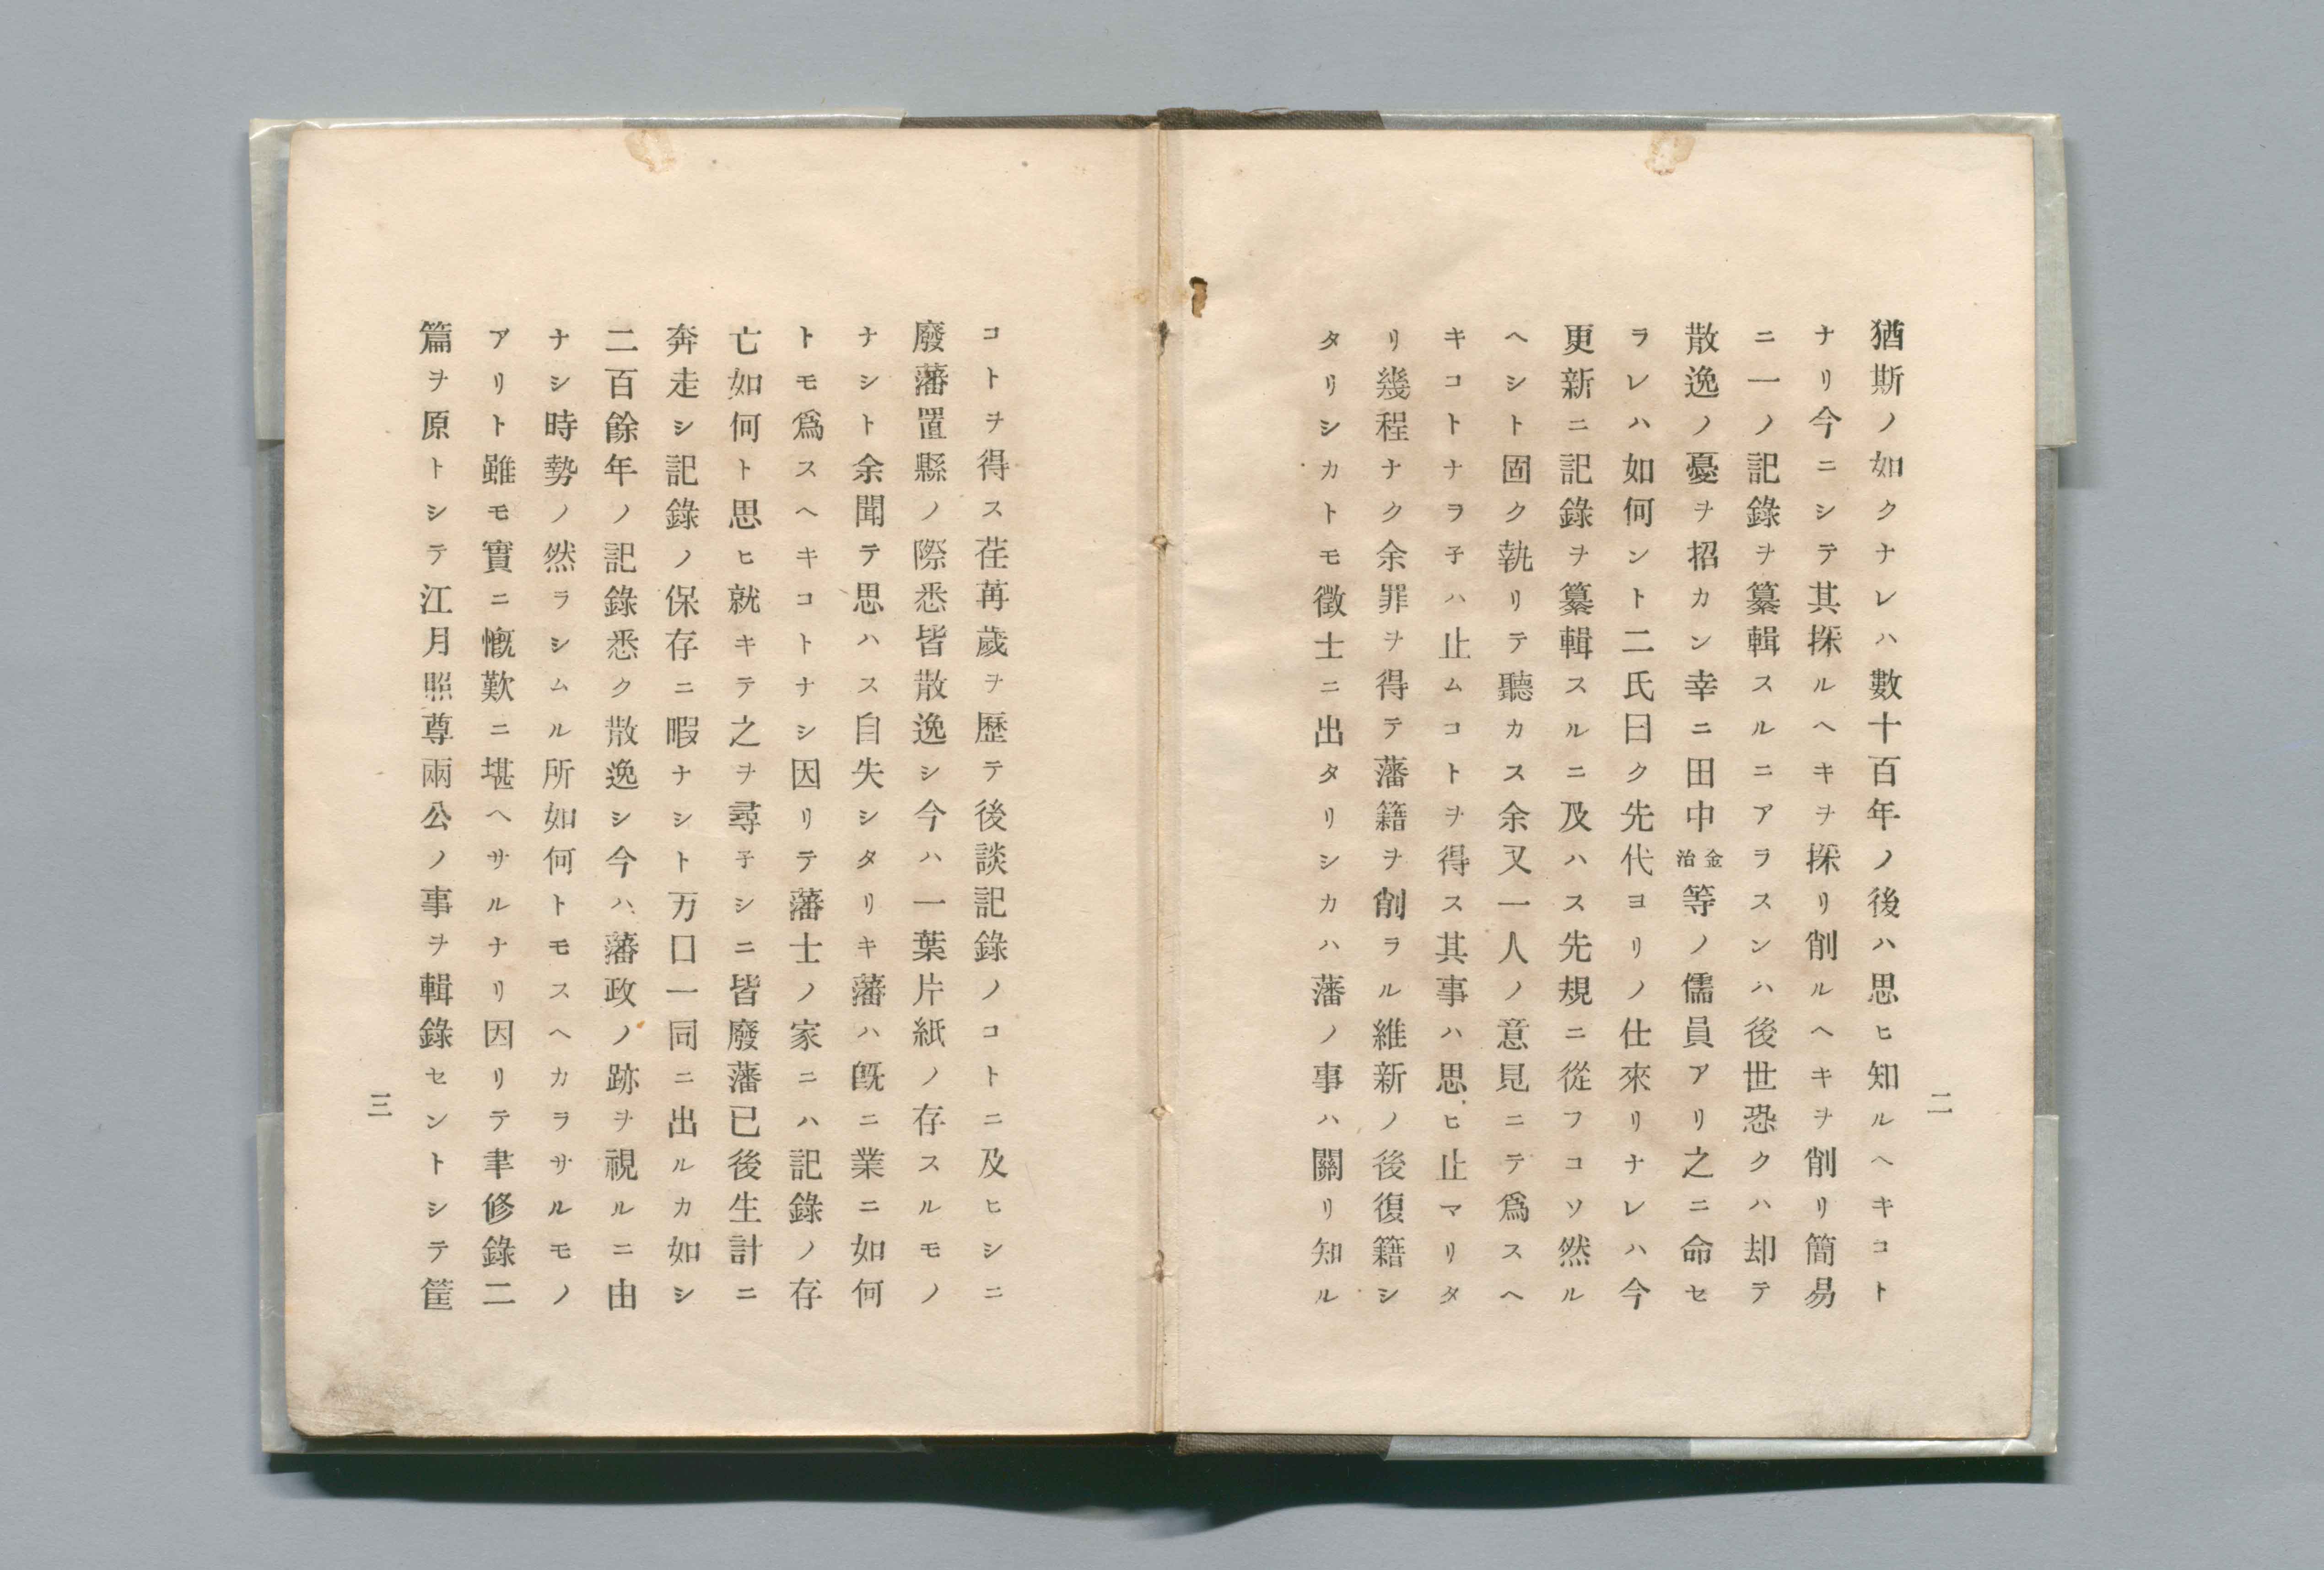 二
猶斯ノ如クナレハ數十百年ノ後ハ思ヒ知ルヘキコト
ナリ今ニシテ其採ルヘキヲ採リ削ルヘキヲ削リ簡易
ニ一ノ記錄ヲ纂輯スルニアラスンハ後世恐クハ却テ
散逸ノ憂ヲ招カン幸ニ田中金治等ノ儒員アリ之ニ命セ
ラレハ如何ント二氏曰ク先代ヨリノ仕來リナレハ今
更新ニ記錄ヲ纂輯スルニ及ハス先規ニ從フコソ然ル
ヘシト固ク執リテ聽カス余又一人ノ意見ニテ爲スヘ
キコトナラ子ハ止ムコトヲ得ス其事ハ思ヒ止マリタ
リ幾程ナク余罪ヲ得テ藩籍ヲ削ラル維新ノ後復籍シ
タリシカトモ徵士ニ出タリシカハ藩ノ事ハ關リ知ル
コトヲ得ス荏苒歲ヲ歷テ後談記錄ノコトニ及ヒシニ
廢藩置縣ノ際悉皆散逸シ今ハ一葉片紙ノ存スルモノ
ナシト余聞テ思ハス自失シタリキ藩ハ既ニ業ニ如何
トモ爲スヘキコトナシ因リテ藩士ノ家ニハ記錄ノ存
亡如何ト思ヒ就キテ之ヲ尋子シニ皆廢藩已後生計ニ
奔走シ記錄ノ保存ニ暇ナシト万口一同ニ出ルカ如シ
二百餘年ノ記錄悉ク散逸シ今ハ藩政ノ跡ヲ視ルニ由
ナシ時勢ノ然ラシムル所如何トモスヘカラサルモノ
アリト雖モ實ニ慨歎ニ堪ヘサルナリ因リテ聿修錄二
篇ヲ原トシテ江月照尊兩公ノ事ヲ輯錄セントシテ筐
三